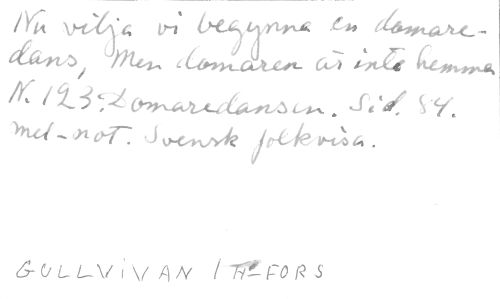 Nu vilja vi begynna en domare-
dans, Men domaren är inte hemma
N. 123. Domaredansen. Sid. 84.
mel-not. Svensk folkvisa.
GULLVIVAN / H-FORS